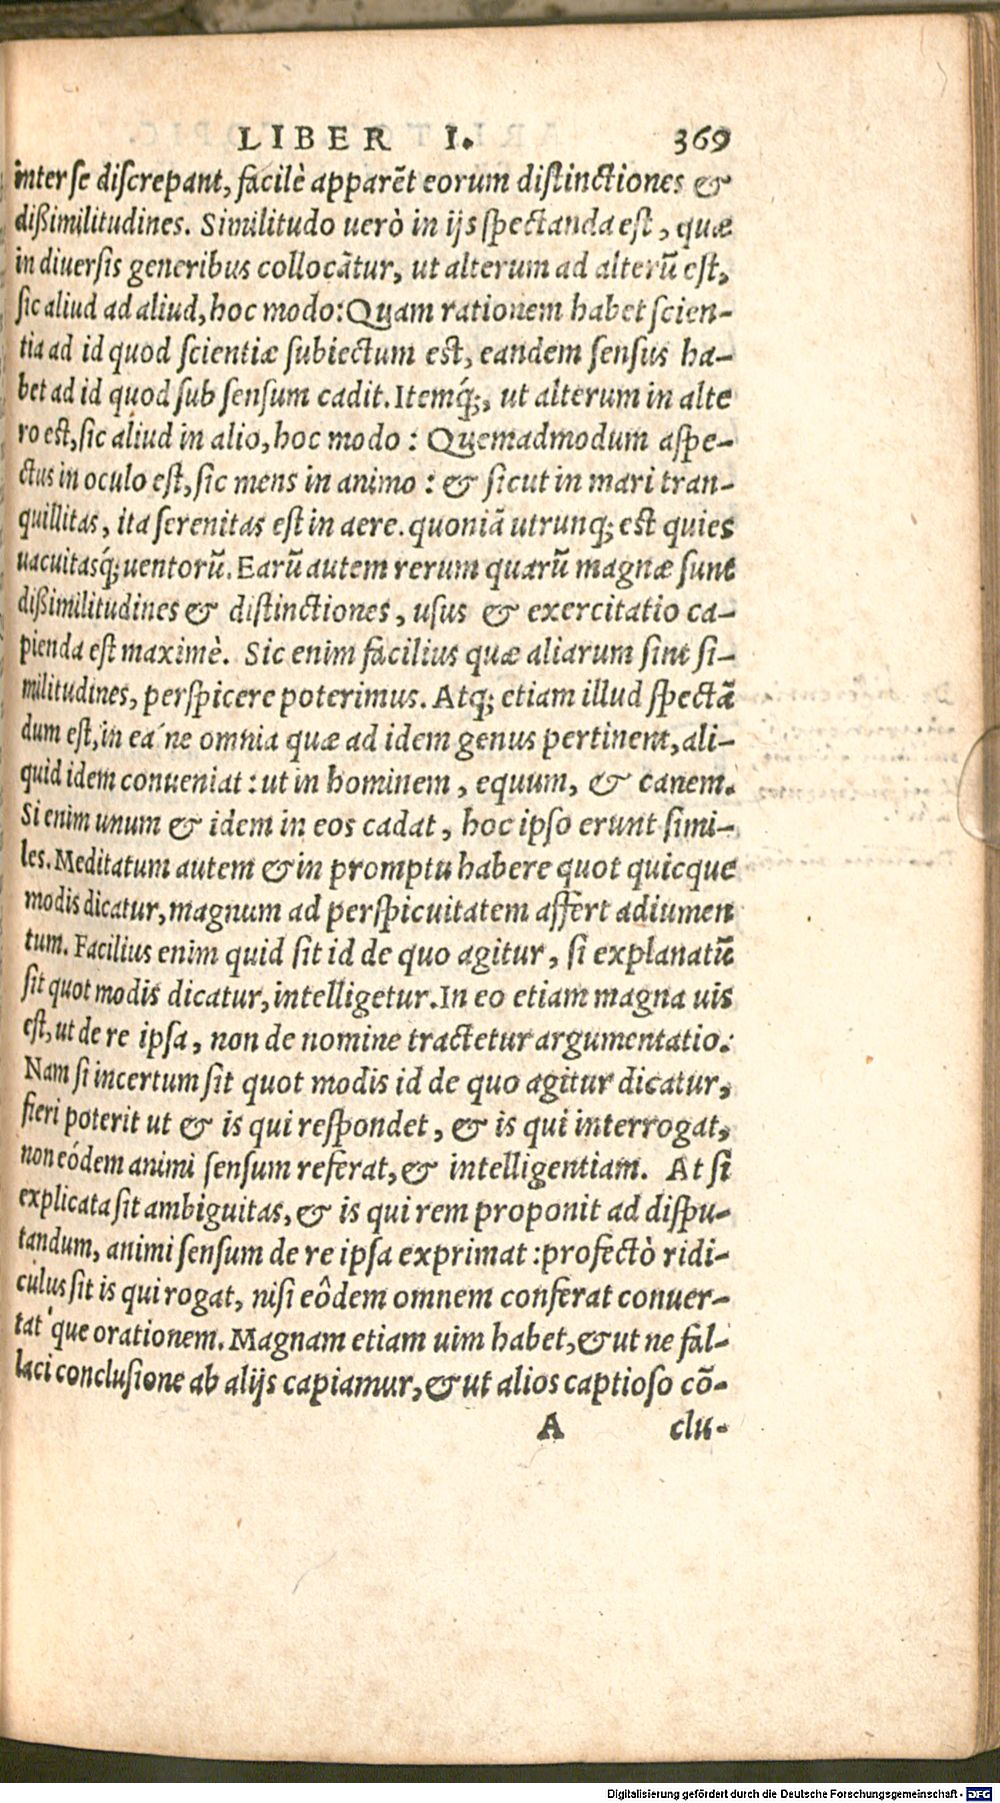 LIBER I. 369
inter se discrepant, facilè apparēt eorum distinctiones &
dißimilitudines. Similitudo uerò in ijs spectanda est, quæ
in diuersis generibus collocātur, ut alterum ad alterū est,
sic aliud ad aliud, hoc modo: Quam rationem habet scien-
tia ad id quod scientiæ subiectum est, eandem sensus ha-
bet ad id quod sub sensum cadit. Itemq́;, ut alterum in alte
ro est, sic aliud in alio, hoc modo: Quemadmodum aspe-
ctus in oculo est, sic mens in animo: & sicut in mari tran-
quillitas, ita serenitas est in aere. quoniā utrunq; est quies
uacuitasq́; uentorū. Earū autem rerum quarū magnæ sunt
dißimilitudines & distinctiones, usus & exercitatio ca-
pienda est maximè. Sic enim facilius quæ aliarum sint si-
militudines, perspicere poterimus. Atq; etiam illud spectā
dum est, in ea´ne omnia quæ ad idem genus pertinent, ali-
quid idem conueniat: ut in hominem, equum, & canem.
Si enim unum & idem in eos cadat, hoc ipso erunt simi-
les. Meditatum autem & in promptu habere quot quicque
modis dicatur, magnum ad perspicuitatem affert adiumen
tum. Facilius enim quid sit id de quo agitur, si explanatū
sit quot modis dicatur, intelligetur. In eo etiam magna uis
est, ut de re ipsa, non de nomine tractetur argumentatio.
Nam si incertum sit quot modis id de quo agitur dicatur,
fieri poterit ut & is qui respondet, & is qui interrogat,
non eódem animi sensum referat, & intelligentiam. At si
explicata sit ambiguitas, & is qui rem proponit ad dispu-
tandum, animi sensum de re ipsa exprimat: profectò ridi-
culus sit is qui rogat, nisi eôdem omnem conferat conuer-
tat´que orationem. Magnam etiam uim habet, & ut ne fal-
laci conclusione ab alijs capiamur, & ut alios captioso cō-
A clu-
Digitalisierung gefördert durch die Deutsche Forschungsgemeinschaft - DFG